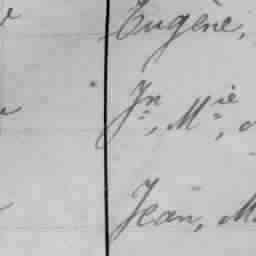 Eugène,
Jn, Mie,
Jean, M